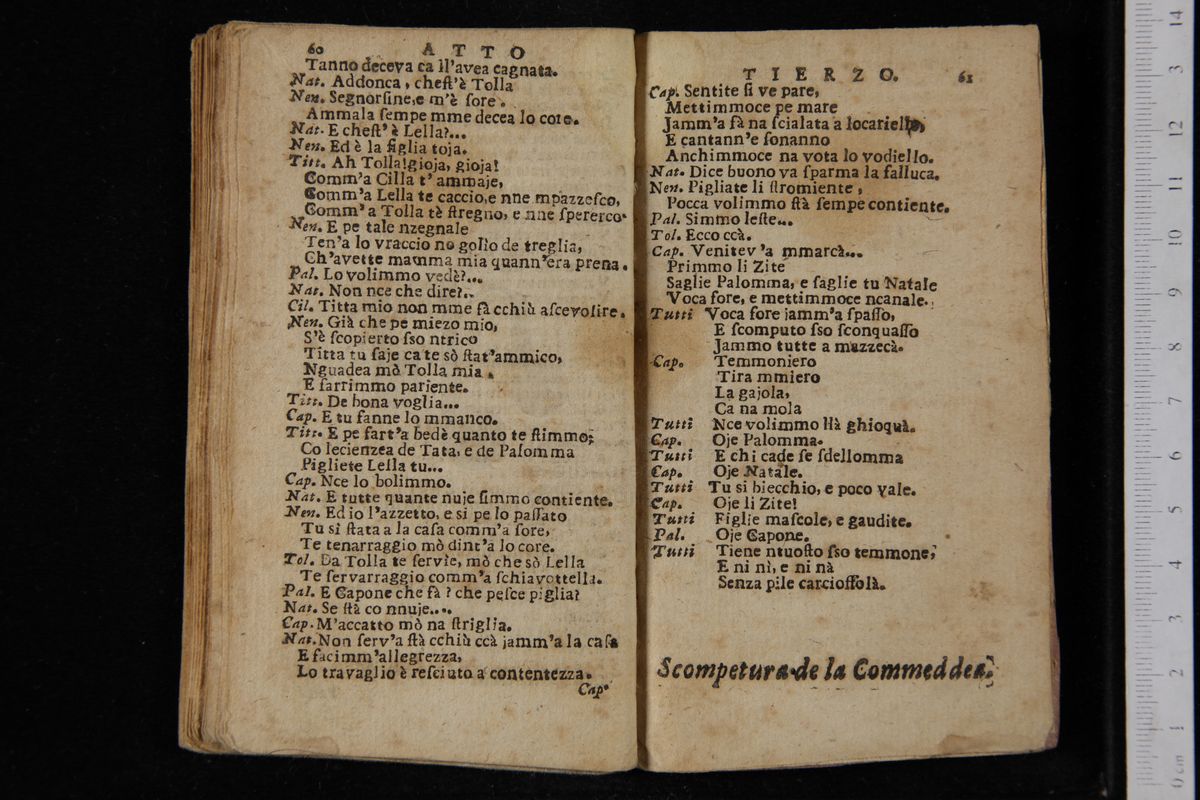 60 ATTO
Tanno deceva ca ll'avea cagnata.
Nat. Addonca, cheſt'è Tolla
Nen. Segnorſine, e m'è ſore.
Ammala ſempe mme decea lo core.
Nat. E cheſt' è Lella?...
Nen. Ed è la figlia toja.
Titt. Ah Tolla! gioja, gioja!
Comm'a Cilla t' ammaje,
Comm'a Lella te caccio, e nne mpazzeſco,
Comm' a Tolla tè ſtregno, e nne ſpererco.
Nen. E pe tale nzegnale
Ten'a lo vraccio no golio de treglia,
Ch'avette mamma mia quann'era prena.
Pal. Lo volimmo vedè?...
Nat. Non nce che dire?..
Cil. Titta mio non mme fà cchiù aſcevolire.
Nen. Già che pe miezo mio,
S'è ſcopierto ſſo ntrico
Titta tu ſaje ca te sò ſtat'ammico,
Nguadea mò Tolla mia.
E farrimmo pariente.
Titt. De bona voglia...
Cap. E tu fanne lo mmanco.
Titt. E pe fart'a bedè quanto te ſtimmo;
Co lecienzea de Tata, e de Palomma
Pigliete Lella tu...
Cap. Nce lo bolimmo.
Nat. E tutte quante nuje ſimmo contiente.
Nen. Ed io l'azzetto, e si pe lo paſſato
Tu si ſtata a la caſa comm'a ſore,
Te tenarraggio mò dint'a lo core.
Tol. Da Tolla te ſervie, mò che sò Lella
Te ſervarraggio comm'a ſchiavottella.
Pal. E Capone che fà? che peſce piglia?
Nat. Se ſtà co nnuje....
Cap. M'accatto mò na ſtriglia.
Nat. Non ſerv'a ſtà cchiù ccà jamm'a la caſa
E facimm'allegrezza,
Lo travaglio è reſciuto a contentezza.
Cap.
TIERZO. 61
Cap. Sentite ſi ve pare,
Mettimmoce pe mare
Jamm'a fà na ſcialata a locariello,
E cantann'e ſonanno
Anchimmoce na vota lo vodiello.
Nat. Dice buono va ſparma la falluca.
Nen. Pigliate li ſtromiente,
Pocca volimmo ſtà ſempe contiente.
Pal. Simmo leſte...
Tol. Ecco ccà.
Cap. Venitev'a mmarcà...
Primmo li Zite
Saglie Palomma, e ſaglie tu Natale
Voca fore, e mettimmoce ncanale.
Tutti Voca fore jamm'a ſpaſſo,
E ſcomputo ſſo ſconquaſſo
Jammo tutte a mazzecà.
Cap. Temmoniero
Tira mmiero
La gajola,
Ca na mola
Tutti Nce volimmo llà ghioquà.
Cap. Oje Palomma.
Tutti E chi cade ſe ſdellomma
Cap. Oje Natale.
Tutti Tu si biecchio, e poco vale.
Cap. Oje li Zite!
Tutti Figlie maſcole, e gaudite.
Pal. Oje Capone.
Tutti Tiene ntuoſto ſſo temmone,
E ni nì, e ni nà
Senza pile carcioffolà.
Scompetura de la Commeddea.
0 cm 1 2 3 4 5 6 7 8 9 10 11 12 3 14